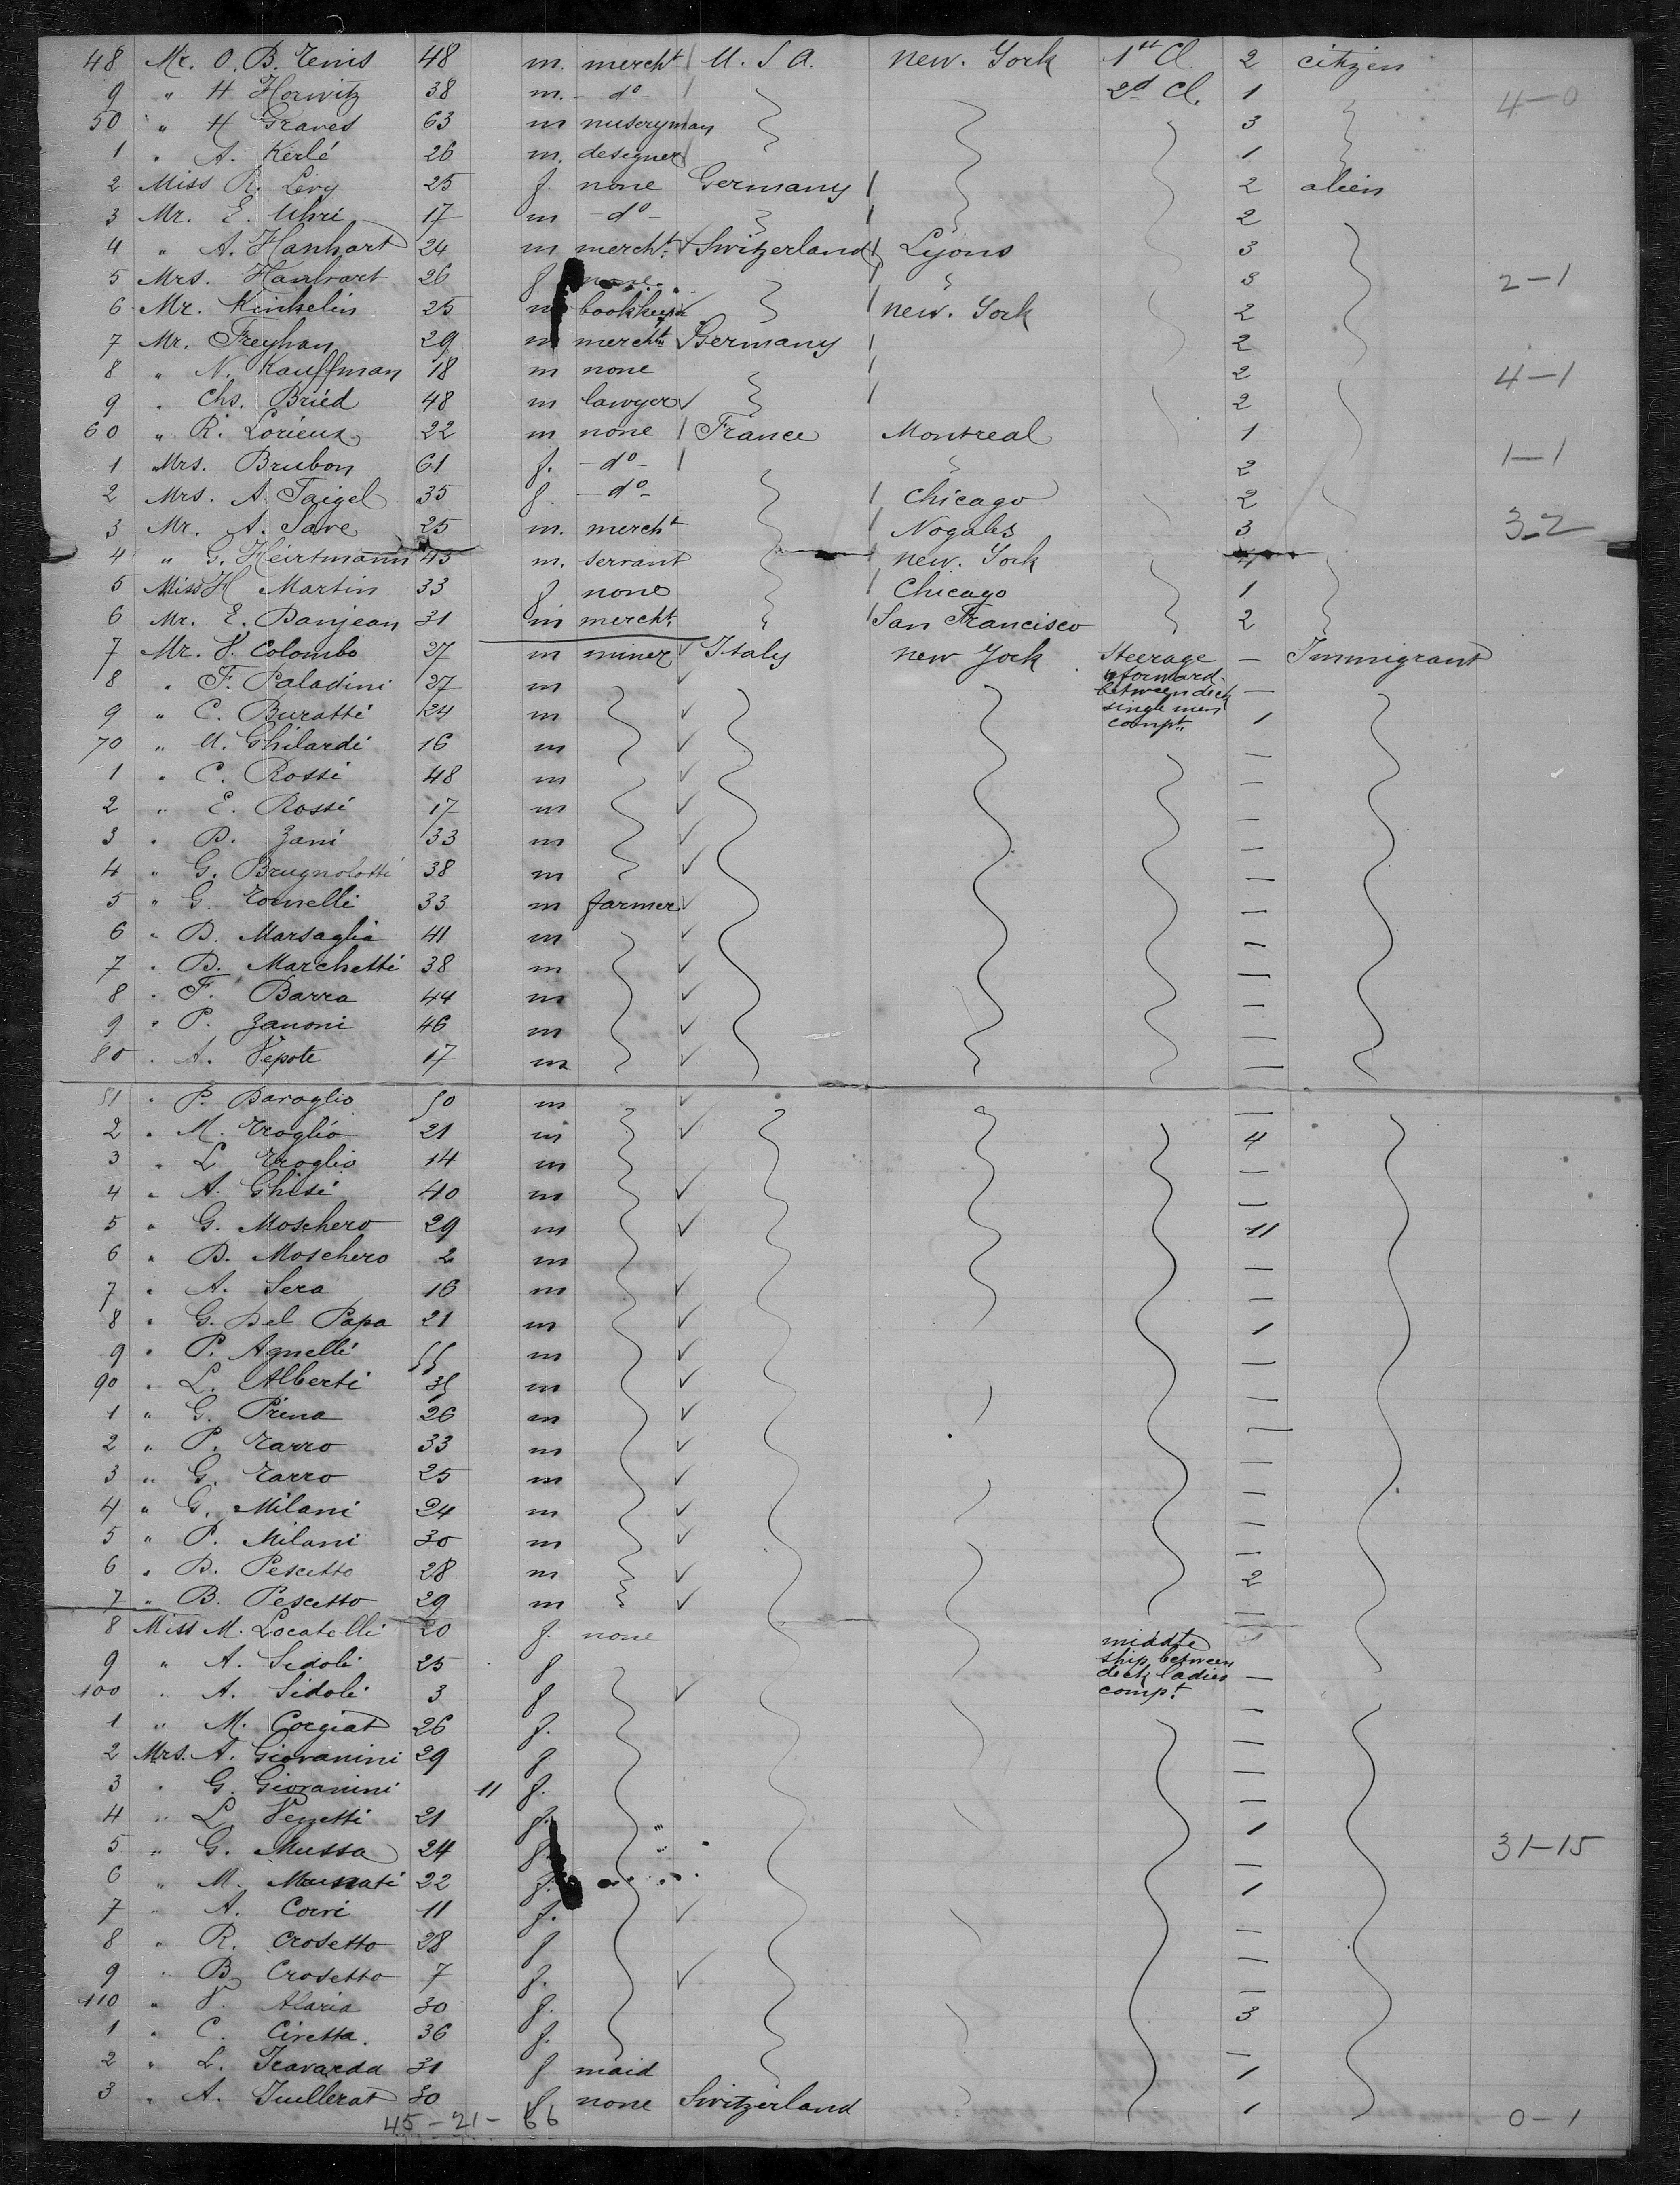 48 Mr. O. B. Tenis 48 m. mercht U. S A. New. York 1st Cl. 2 citizen
9 " H Horwitz 38 m. - do - 2d Cl. 1 4-0
50 " H Graves 63 m nuseryman 3
1 " A. Kerlé 26 m. designer 1
2 Miss R. Levy 25 f. none Germany 2 alien
3 Mr. E. Uhri 17 m - do - 2
4 " A. Hanhart 24 m mercht. Switzerland Lyons 3
5 Mrs. Hanhart 26 f none 3 2-1
6 Mr. Kinkelin 25 m bookkeeper New. York 2
7 Mr. Freyhan 29 m mercht Germany 2
8 " N. Kauffman 18 m none 2 4-1
9 " Chs. Bried 48 m lawyer 2
60 " R. Lorieux 22 m none France Montreal 1
1 " Mrs. Brubon 61 f. - do - 2 1-1
2 Mrs. A. Taigel 35 f. - do - Chicago 2
3 Mr. A. Save 25 m. mercht Nogales 3 3-2
4 " G. Heirtmann 45 m. servant New. York
5 Miss H Martin 33 f none Chicago 1
6 Mr. E. Banjean 31 m mercht. San Francisco 2
7 Mr. V. Colombo 27 m miner Italy New York Steerage — Immigrant
8 " F. Paladini 27 m forward between deck —
9 " C. Buratti 24 m single men compt. 1
70 " U. Ghilardi 16 m —
1 " C. Rossi 48 m —
2 " E. Rossi 17 m —
3 " B. Zani 33 m —
4 " G. Brugnolotti 38 m —
5 " G. Tomelli 33 m farmer —
6 " D. Marsaglia 41 m —
7 " D. Marchetti 38 m —
8 " F. Barra 44 m —
9 " P. Zanoni 46 m —
80 " A. Vepote 17 m —
81 " P. Baroglio 50 m —
2 " M. Troglio 21 m 4
3 " L. Troglio 14 m —
4 " A. Ghisi 40 m —
5 " G. Moschero 29 m 11
6 " D. Moschero 2 m —
7 " A. Sera 16 m —
8 " G. Del Papa 21 m 1
9 " P. Agnelli 55 m —
90 " L. Alberti 35 m —
1 " G. Prina 26 m —
2 " P. Tarro 33 m —
3 " G. Tarro 25 m —
4 " G. Milani 24 m —
5 " P. Milani 30 m —
6 " D. Pescetto 28 m 2
7 " B. Pescetto 29 m —
8 Miss M. Locatelli 20 f. none middle 1
9 " A. Sidoli 25 f ship between deck ladies —
100 " A. Sidoli 3 f compt. —
1 " M. Corgiat 26 f. —
2 Mrs. A. Giovanini 29 f. —
3 " G. Giovanini 11 f. —
4 " L. Vezzetti 21 f. 1
5 " G. Mussa 24 f. — 31-15
6 " M. Musnati 22 f. 1
7 " A. Corri 11 f. —
8 " R. Crosetto 28 f —
9 " B. Crosetto 7 f. —
110 " V. Alaria 30 f. 3
1 " C. Ciretta. 36 f. —
2 " L. Travarda 31 f maid 1
3 " A. Juillerat 30 f none Switzerland 1 0-1
45-21-66